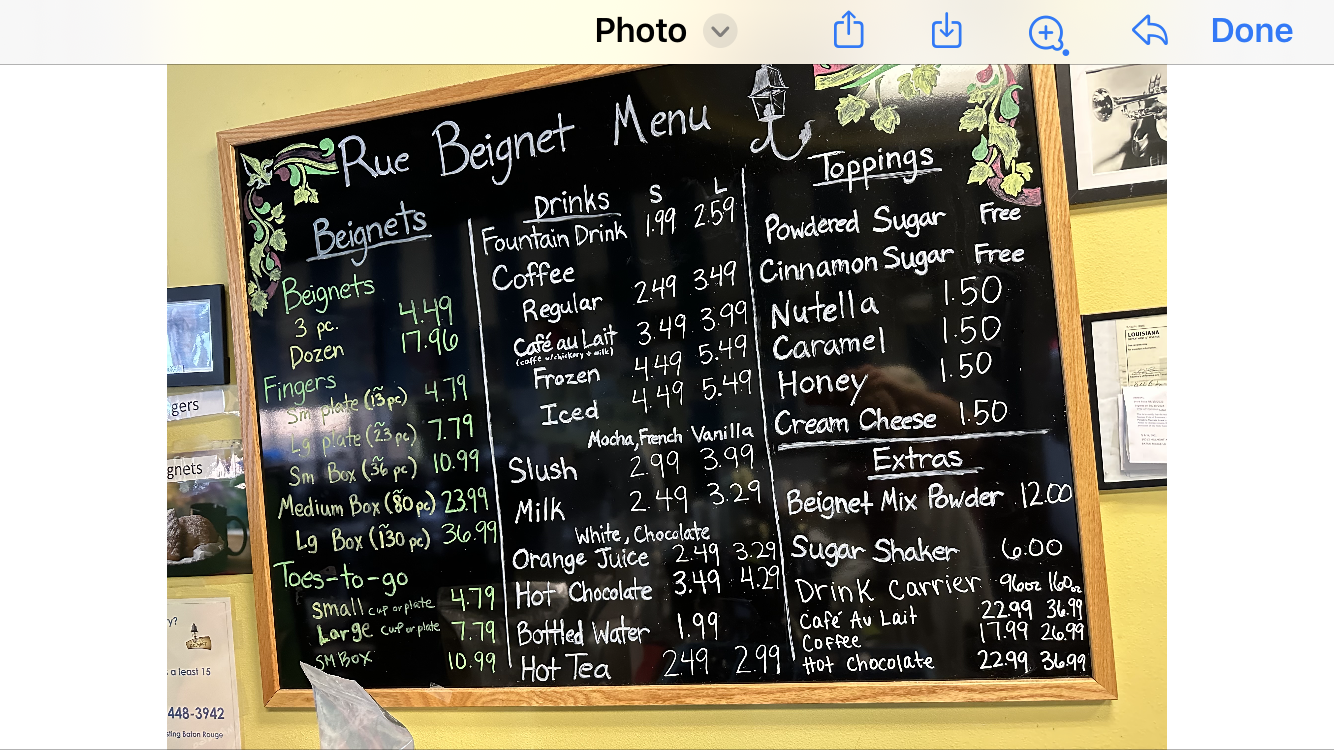 Photo
Done
Rue Beignet Menu
Beignets
Beignets
3 pc. 4.49
Dozen 17.96
Fingers
Sm plate (~13pc) 4.79
Lg plate (~23 pc) 7.79
Sm Box (~36 pc) 10.99
Medium Box (~80 pc) 23.99
Lg Box (~130 pc) 36.99
Toes-to-go
Small cup or plate 4.79
Large cup or plate 7.79
SM Box 10.99
Drinks S L
Fountain Drink 1.99 2.59
Coffee
Regular 2.49 3.49
Café au Lait 3.49 3.99
(coffe w/chickory + milk)
Frozen 4.49 5.49
Iced 4.49 5.49
Mocha, French Vanilla
Slush 2.99 3.99
Milk 2.49 3.29
White, Chocolate
Orange Juice 2.49 3.29
Hot Chocolate 3.49 4.29
Bottled Water 1.99
Hot Tea 2.49 2.99
Toppings
Powdered Sugar Free
Cinnamon Sugar Free
Nutella 1.50
Caramel 1.50
Honey 1.50
Cream Cheese 1.50
Extras
Beignet Mix Powder 12.00
Sugar Shaker 6.00
Drink Carrier 96oz 160oz
Café Au Lait 22.99 36.99
Coffee 17.99 26.99
Hot Chocolate 22.99 36.99
gers
gnets
y?
a least 15
448-3942
ting Baton Rouge
LOUISIANA